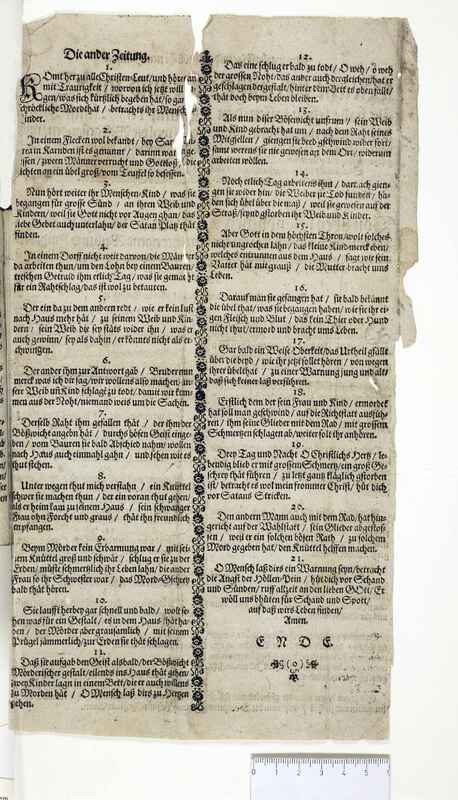 Die ander Zeitung.
1.
KOmt her zu alle Christen-Leut/ und höre an
mit Traurigkeit / worvon ich jetzt will
gen/ was sich kürtzlich begeben hat/ so gar
schröckliche Mordthat / betrachts ihr Mensch
Kinder.
2.
In einem Flecken wol bekandt / bey
in Kärnden ist es genannt / darinn
/ zween Männer verrucht und Gottloß / die
ichten an ein übel groß/ vom Teuffel so besessen.
3.
Nun hört weiter ihr Menschen-Kind / was sie
begangen für grosse Sünd / an ihren Weib und
Kindern / weil sie Gott nicht vor Augen ghan / das
liebe Gebet auch unterlahn / der Satan Platz thät
finden.
4.
In einem Dorff nicht weit darvon / die Männer
da arbeiten thun / um den Lohn bey einem Bauren /
treschen Getraid ihm etlich Tag / was sie gemacht
für ein Rahtschlag / das ist wol zu betauren.
5.
Der ein da zu dem andern redt / wie er kein lust
nach Haus mehr hät / zu seinem Weib und Kin-
dern / sein Weib die sey stäts wider ihn / was er
auch gewinn / sey als dahin / er könnts nicht als er-
schwingen.
6.
Der ander ihm zur Antwort gab / Bruder nun
merck was ich dir sag / wir wollens also machen / un-
sere Weib und Kind schlagt zu todt / damit wir kom-
men aus der Noht / niemand weis um die Sachen.
7.
Derselb Raht ihm gefallen thät / der ihm der
Bößwicht angebn hät / durchs bösen Geist einge-
ben / vom Bauren sie bald Abschied nahm / wollen
nach Haus auch einmahl gahn / und sehen wie es
thut stehen.
8.
Unter wegen thut mich verstahn / ein Knüttel
schwer sie machen thun / der ein voran thut gehen /
als er heim kam zu seinem Haus / sein schwanger
Frau ohn Forcht und graus / thät ihn freundlich
empfangen.
9.
Beym Mörder kein Erbarmung war / mit sei-
nem Knüttel groß und schwär / schlug er sie zu der
Erden / müste schmertzlich ihr Leben lahn / die ander
Frau so ihr Schwester war / das Mord-Gschrey
bald thät hören.
10.
Sie laufft herbey gar schnell und bald / wolt se-
hen was für ein Gestalt / es in dem Haus thät ha-
ben / der Mörder aber grausamlich / mit seinem
Prügel jämmerlich / zur Erden sie thät schlagen.
11.
Daß sie aufgab den Geist alsbald / der Bößwicht
Mörderischer gestalt / eilends ins Haus thät gehen /
zwey Kinder lagn in einem Bett / die er auch willens
zu Morden hät / O Mensch laß dirs zu Hertzen
gehen.
12.
Das eine schlug er bald zu todt / O weh / o weh
der grossen Noht / das ander auch dergleichen / hat er
geschlagen dergestalt / hinter dem Bett es oben fallt /
thät doch beym Leben bleiben.
13.
Als nun diser Bösewicht unfrum / sein Weib
und Kind gebracht hat um / nach dem Raht seines
Mitgsellen / giengen sie beyd gschwind wider fort /
sams wärens sie nie gewesen an dem Ort / widerum
arbeiten wöllen.
14.
Noch etlich Tag arbeitens thun / darnach gien-
gen sie wider hin / die Weiber zu Tod funden / ha-
ben sich übel über die maß / weil sie gewesen auf der
Straß / seynd gstorben ihr Weib und Kinder.
15.
Aber Gott in dem höchsten Thron / wolt solches
nicht ungrochen lahn / das kleine Kind merck eben /
welches entrunnen aus dem Haus / sagt wie sein
Vatter hät mit grauß / die Mutter bracht ums
Leben.
16.
Darauf man sie gefangen hat / sie bald bekannt
die übel that / was sie begangen haben / wie sie ihr ei-
gen Fleisch und Blut / das kein Thier oder Hund
nicht thut / ermord und bracht ums Leben.
17.
Gar bald ein Weise Oberkeit / das Urtheil gfällt
über die beyd / wie ihr jetzt sollet hören / von wegen
ihrer übelthat / zu einer Warnung jung und alt /
daß sich keiner laß verführen.
18.
Erstlich dem der sein Frau und Kind / ermordet
hat soll man geschwind / auf die Richtstatt ausfüh-
ren / ihm seine Glieder mit dem Rad / mit grossem
Schmertzen schlagen ab / weiter solt ihr anhören.
19.
Drey Tag und Nacht O Christlichs Hertz / le-
bendig blieb er mit grossem Schmertz / ein groß Ge-
schrey thät führen / zu letzt gantz kläglich gstorben
ist / betracht es wol mein frommer Christ / hüt dich
vor Satans Stricken.
20.
Den andern Mann auch mit dem Rad / hat hin-
gericht auf der Wahlstatt / sein Glieder abgestos-
sen / weil er ein solchen bösen Rath / zu solchem
Mord gegeben hat / den Knüttel helffen machen.
21.
O Mensch laß dirs ein Warnung seyn / betracht
die Angst der Höllen-Pein / hüt dich vor Schand
und Sünden / ruff allzeit an den lieben GOtt / Er
wöll uns bhüten für Schand und Spott /
auf daß wirs Leben finden /
Amen.
E N D E.